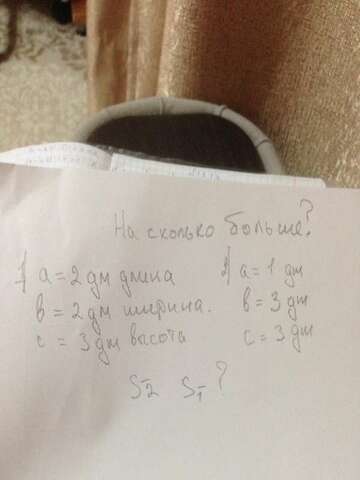 На сколько больше?
1) a = 2 дм длина
в = 2 дм ширина.
c = 3 дм васота
2) a = 1 дм
в = 3 дм
c = 3 дм
S2 S1 ?